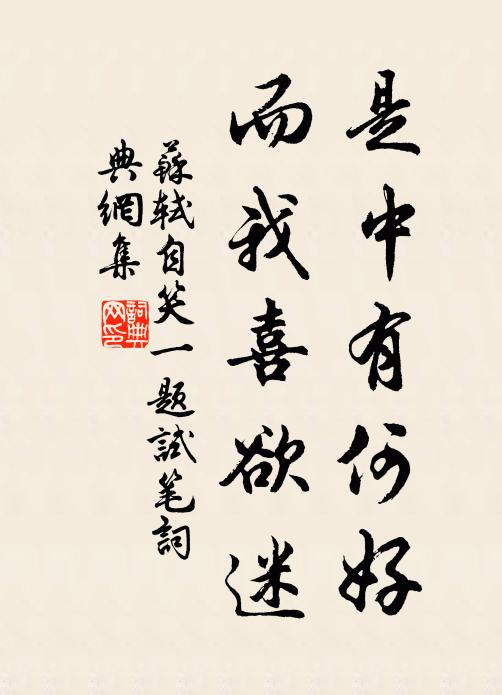 是中有何好
而我喜欲迷
蘇軾自笑一題試笔詞
典網集
詞典
网印